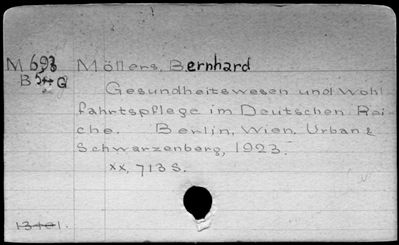 M693 Möllers, Bernhard
B54G Gesundheitswesen und Wohl
fahrtspflege im Deutschen Rei-
che. Berlin, Wien, Urban &
Schwarzenberg, 1923.
xx, 713 S.